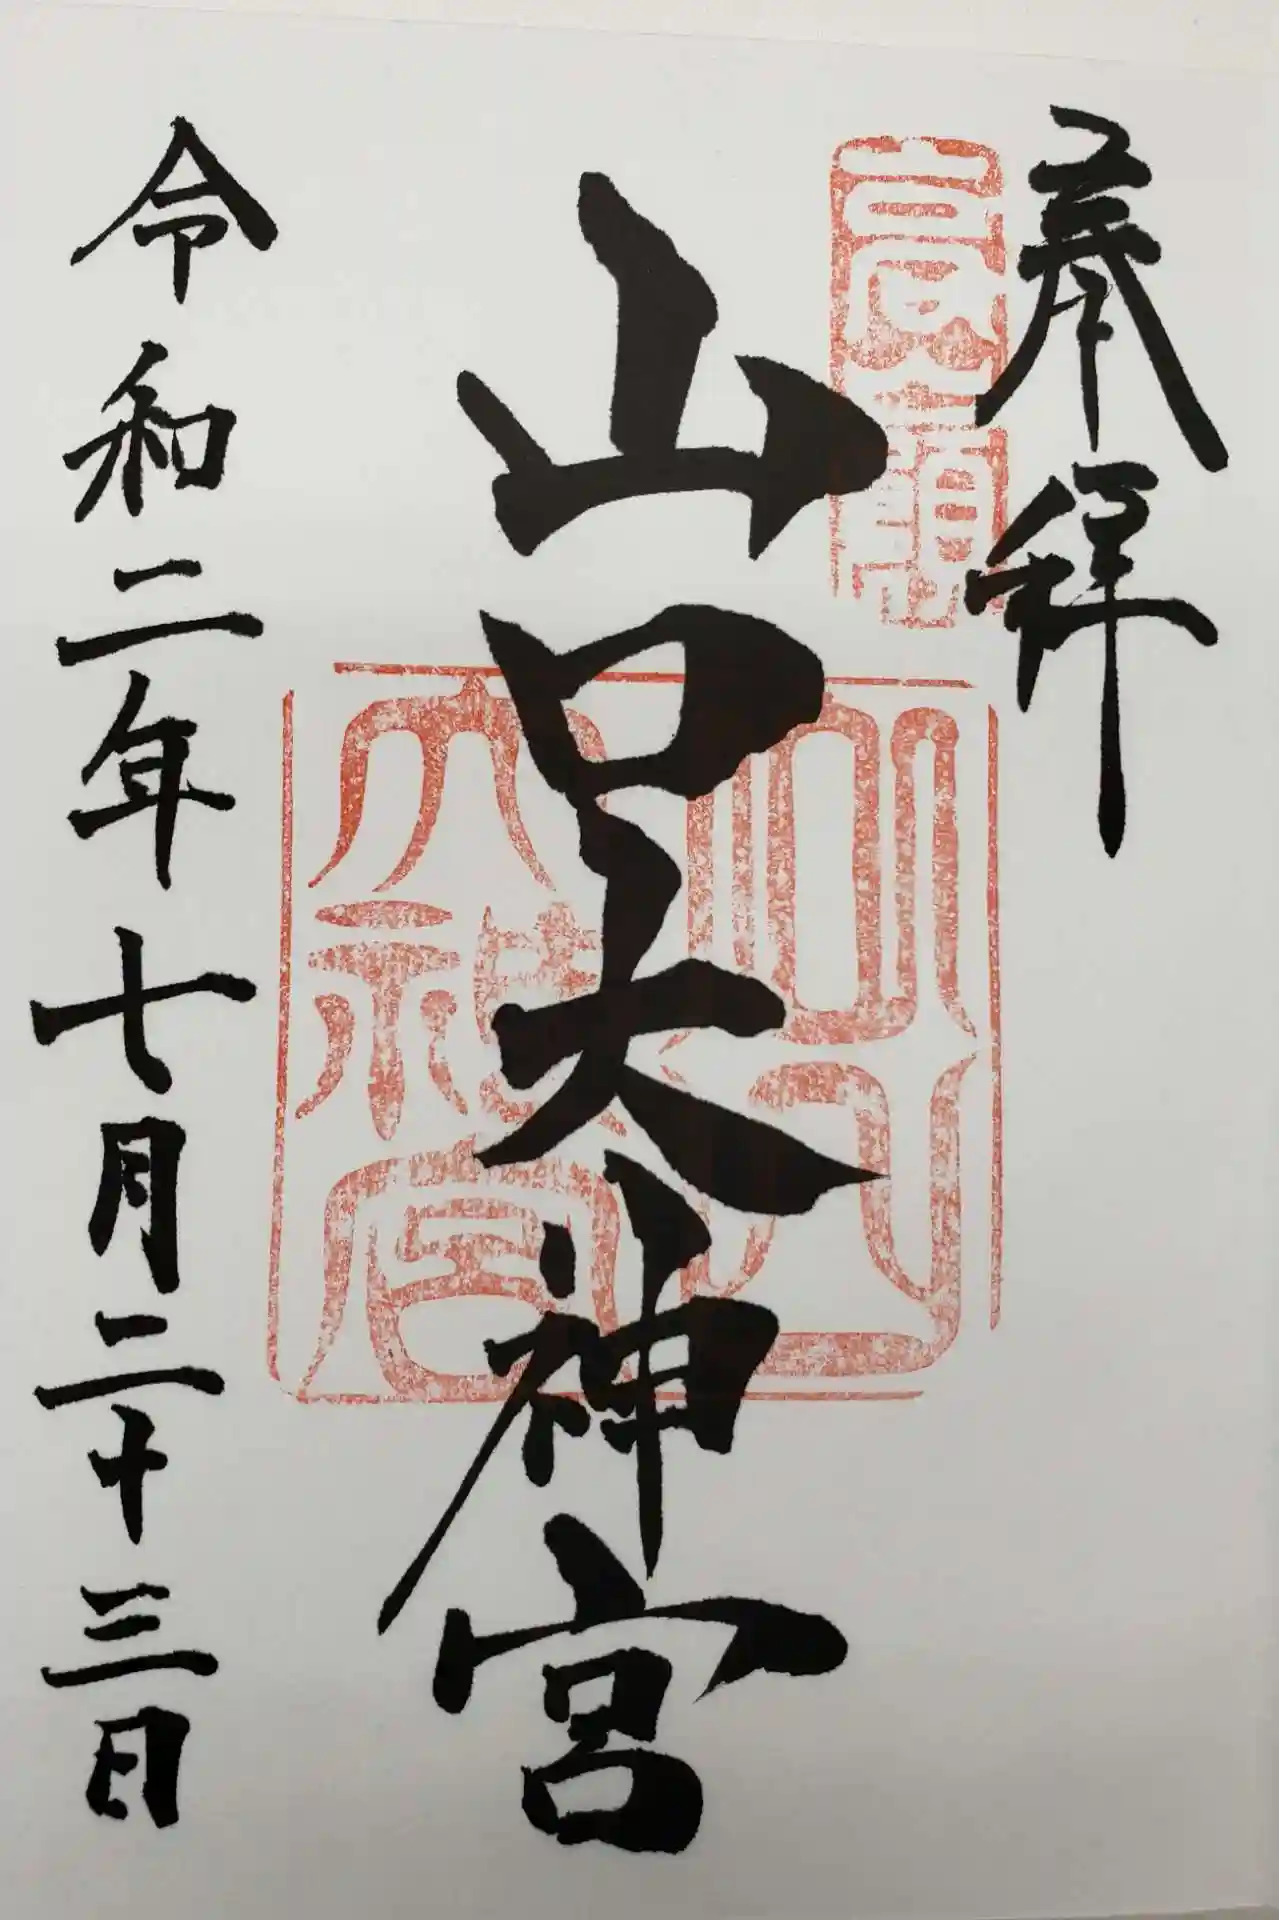 奉拝
高嶺
山口大神宮
山口大神宮
令和二年七月二十三日